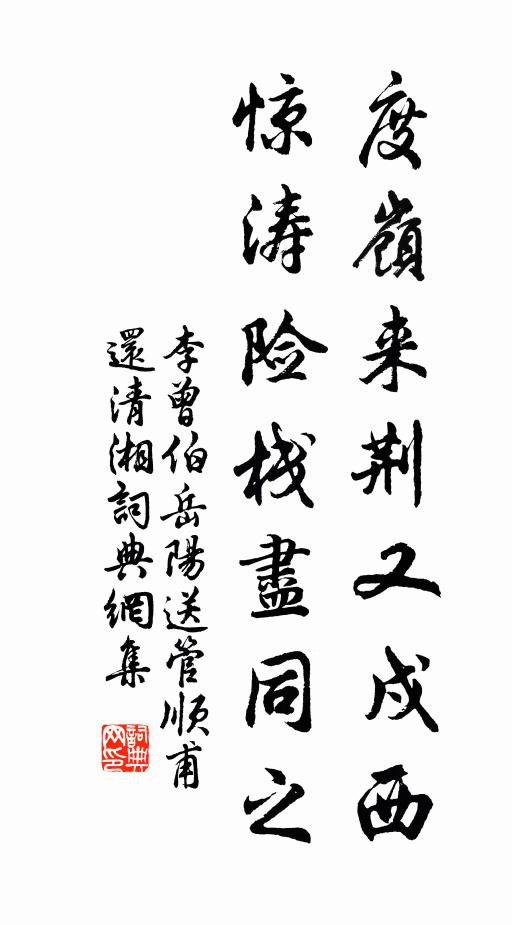 度嶺来荆又戍西
惊涛险栈盡同之
李曾伯岳陽送管順甫
還清湘詞典網集
詞典网印